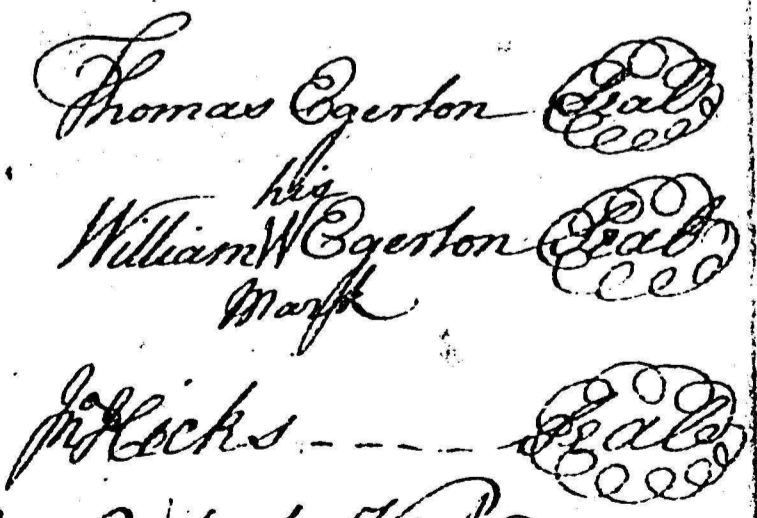 Thomas Egerton Seal
his
William W Egerton Seal
Mark
Jno Hicks - - - - - Seal